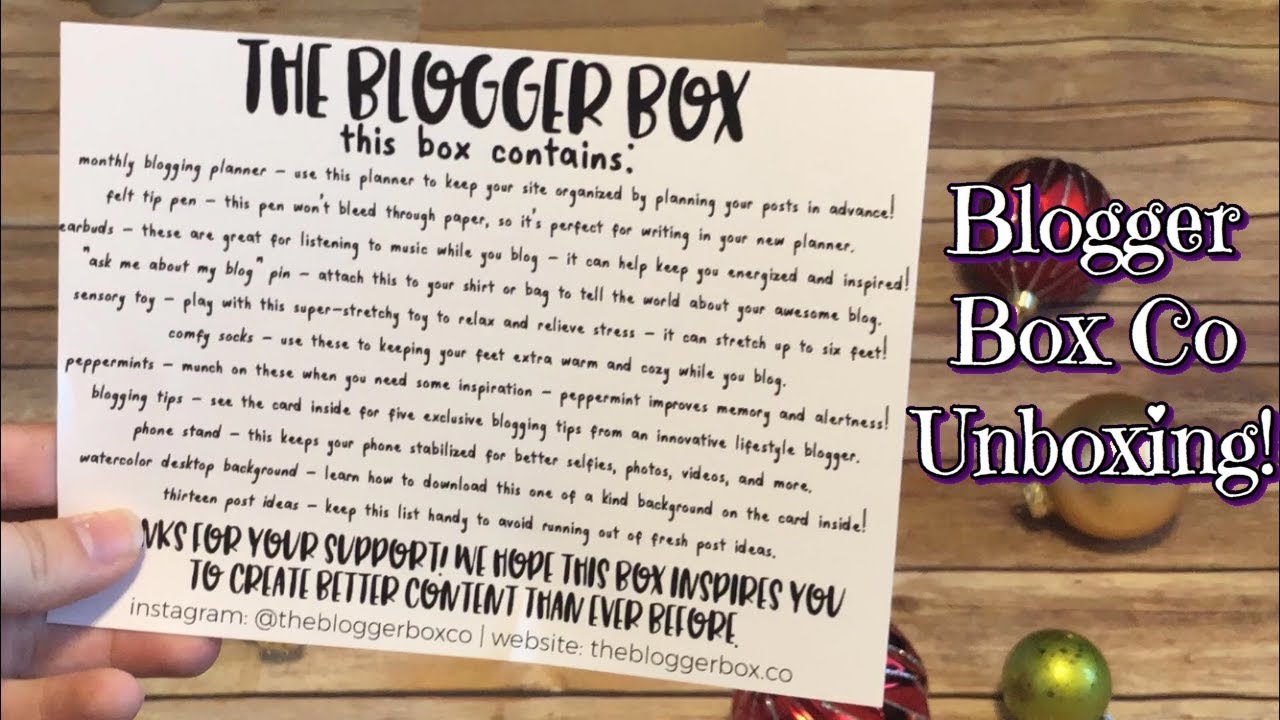 THE BLOGGER BOX
this box contains:
monthly blogging planner – use this planner to keep your site organized by planning your posts in advance!
felt tip pen – this pen won't bleed through paper, so it's perfect for writing in your new planner.
earbuds – these are great for listening to music while you blog – it can help keep you energized and inspired!
"ask me about my blog" pin – attach this to your shirt or bag to tell the world about your awesome blog.
sensory toy – play with this super-stretchy toy to relax and relieve stress – it can stretch up to six feet!
comfy socks – use these to keeping your feet extra warm and cozy while you blog.
peppermints – munch on these when you need some inspiration – peppermint improves memory and alertness!
blogging tips – see the card inside for five exclusive blogging tips from an innovative lifestyle blogger.
phone stand – this keeps your phone stabilized for better selfies, photos, videos, and more.
watercolor desktop background – learn how to download this one of a kind background on the card inside!
thirteen post ideas – keep this list handy to avoid running out of fresh post ideas.
NKS FOR YOUR SUPPORT! WE HOPE THIS BOX INSPIRES YOU
TO CREATE BETTER CONTENT THAN EVER BEFORE.
instagram: @thebloggerboxco | website: thebloggerbox.co
Blogger
Box Co
Unboxing!